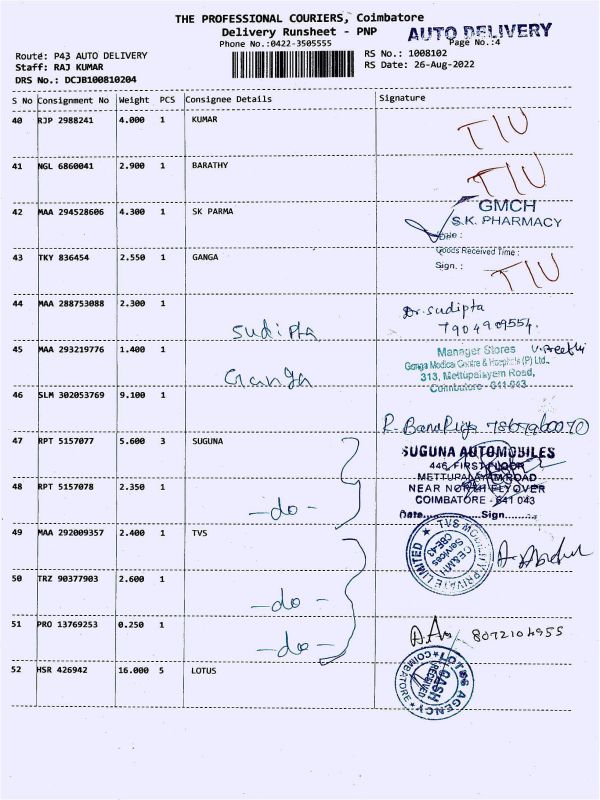 THE PROFESSIONAL COURIERS, Coimbatore
Delivery Runsheet - PNP
AUTO DELIVERY
Phone No.:0422-3505555
Page No.:4
Route: P43 AUTO DELIVERY
RS No.: 1008102
Staff: RAJ KUMAR
RS Date: 26-Aug-2022
DRS No.: DCJB100810204
S No Consignment No Weight PCS Consignee Details Signature
40 RJP 2988241 4.000 1 KUMAR
TIU
41 NGL 6860041 2.900 1 BARATHY
TIU
42 MAA 294528606 4.300 1 SK PARMA
GMCH
S.K. PHARMACY
Date :
Goods Received Time :
Sign. :
43 TKY 836454 2.550 1 GANGA
TIU
44 MAA 288753088 2.300 1
Sudipta
Dr. Sudipta
7904909554.
45 MAA 293219776 1.400 1
Ganga
Manager Stores
V. Preethi
Ganga Medical Centre & Hospitals (P) Ltd.,
313, Mettupalayam Road,
Coimbatore - 641 043
46 SLM 302053769 9.100 1
47 RPT 5157077 5.600 3 SUGUNA
SUGUNA AUTOMOBILES
446, FIRST FLOOR
METTUPALAYAM ROAD
NEAR NORTH FLYOVER
COIMBATORE - 641 043
Date............Sign...........
48 RPT 5157078 2.350 1
-do-
49 MAA 292009357 2.400 1 TVS
TVS MOBILITY PRIVATE LIMITED
50 TRZ 90377903 2.600 1
-do-
51 PRO 13769253 0.250 1
-do-
8072104955
52 HSR 426942 16.000 5 LOTUS
LOTUS AGENCY
COIMBATORE
CASH
RECEIVED